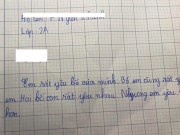 Lớp 2A
Em rất yêu bố của mình. Bố em cũng rất yêu
em. Hai bố con rất yêu nhau. Nhưng em yêu
hơn.